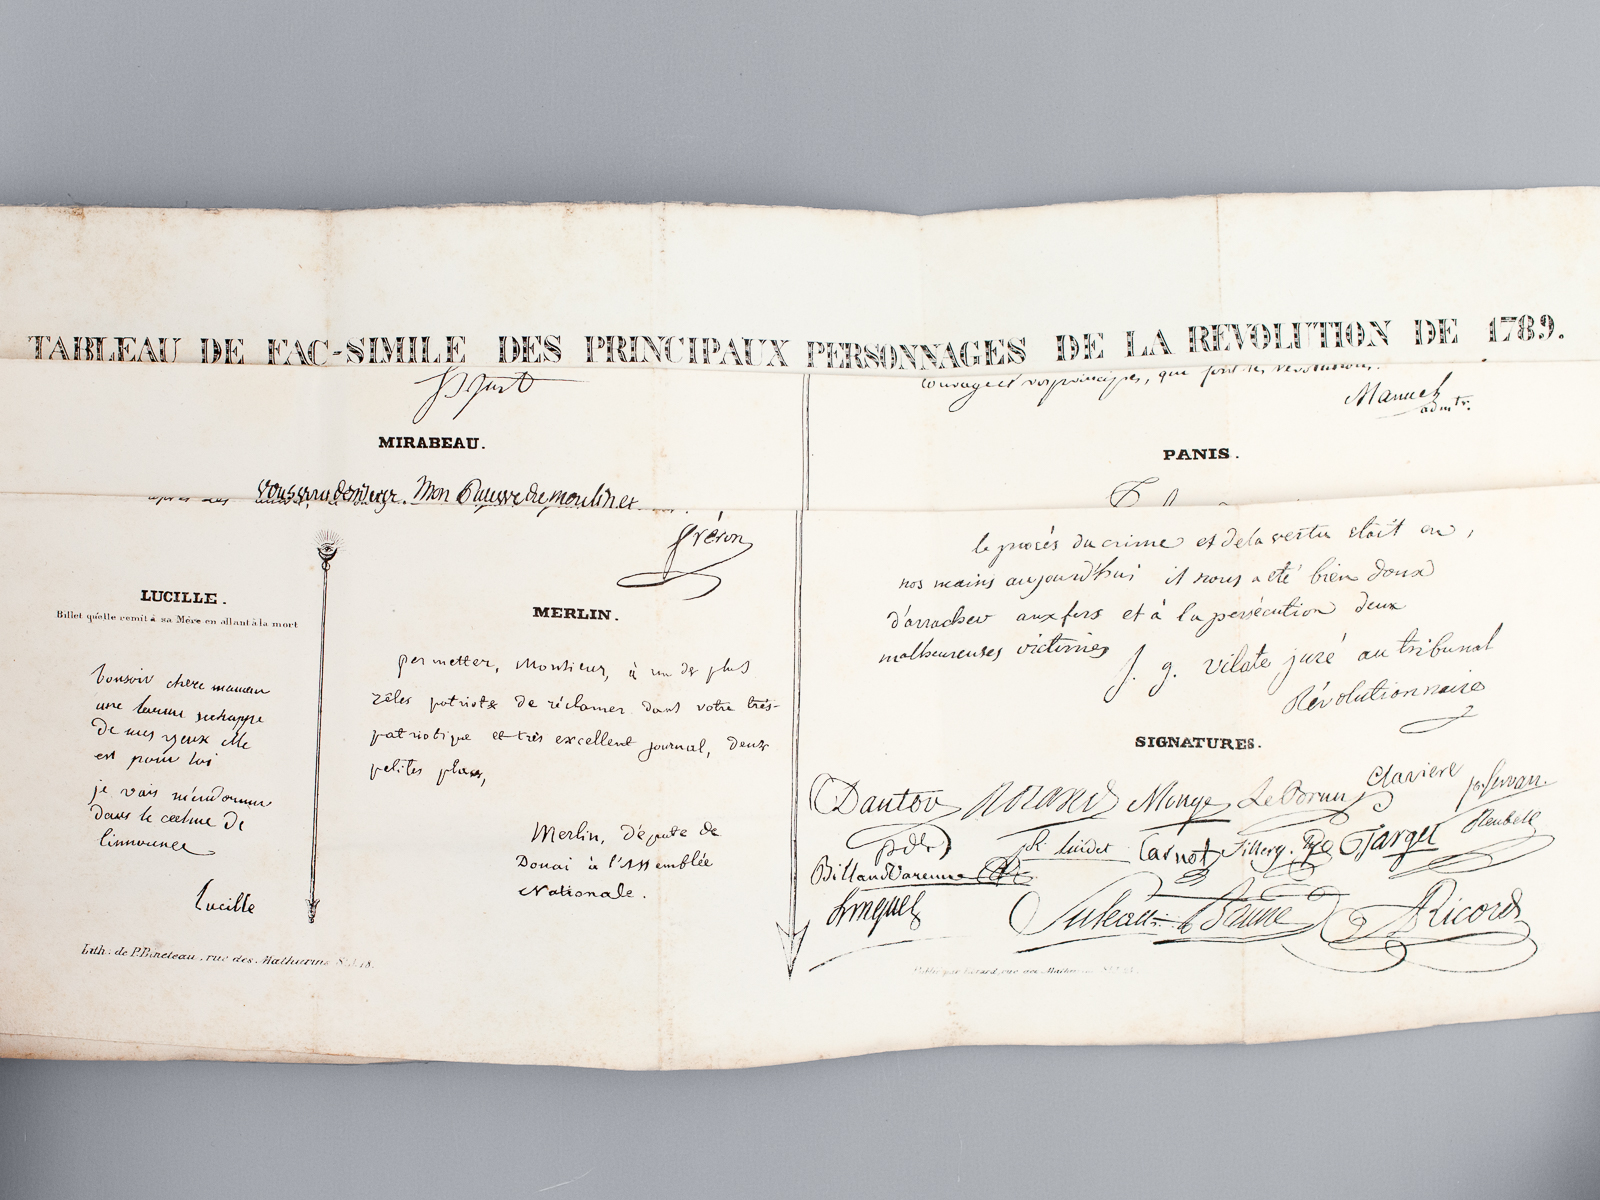 TABLEAU DE FAC-SIMILE DES PRINCIPAUX PERSONNAGES DE LA REVOLUTION DE 1789.
St Just
MIRABEAU.
Mon
que font les révolutions.
Manuel
admtr.
PANIS.
LUCILLE.
Billet qu'elle remit à sa Mère en allant à la mort
bonsoir chere maman
une larme sechappe
de mes yeux elle
est pour toi
je vais m'endormir
dans le calme de
linnocence
Lucille
Lith: de P. Bineteau, rue des Mathurins St J. 18.
fréron
MERLIN.
permetter, Monsieur, à un de plus
zèles patriote de réclamer dans votre très-
patriotique et très excellent journal, deux
petites places,
Merlin, Député de
Douai à l'Assemblée
Nationale.
le procès du crime et de la vertu etait en,
nos mains aujourd'hui il nous a été bien doux
d'arracher aux fers et à la persécution deux
malheureuses victimes
J. g. vilate juré au tribunal
Révolutionnaire
SIGNATURES.
Danton Roland Monge LeBrun Claviere jos Servan
R. Lindet Carnot Target Reubell
Billaud Varenne
Linguet Suleau Ricord